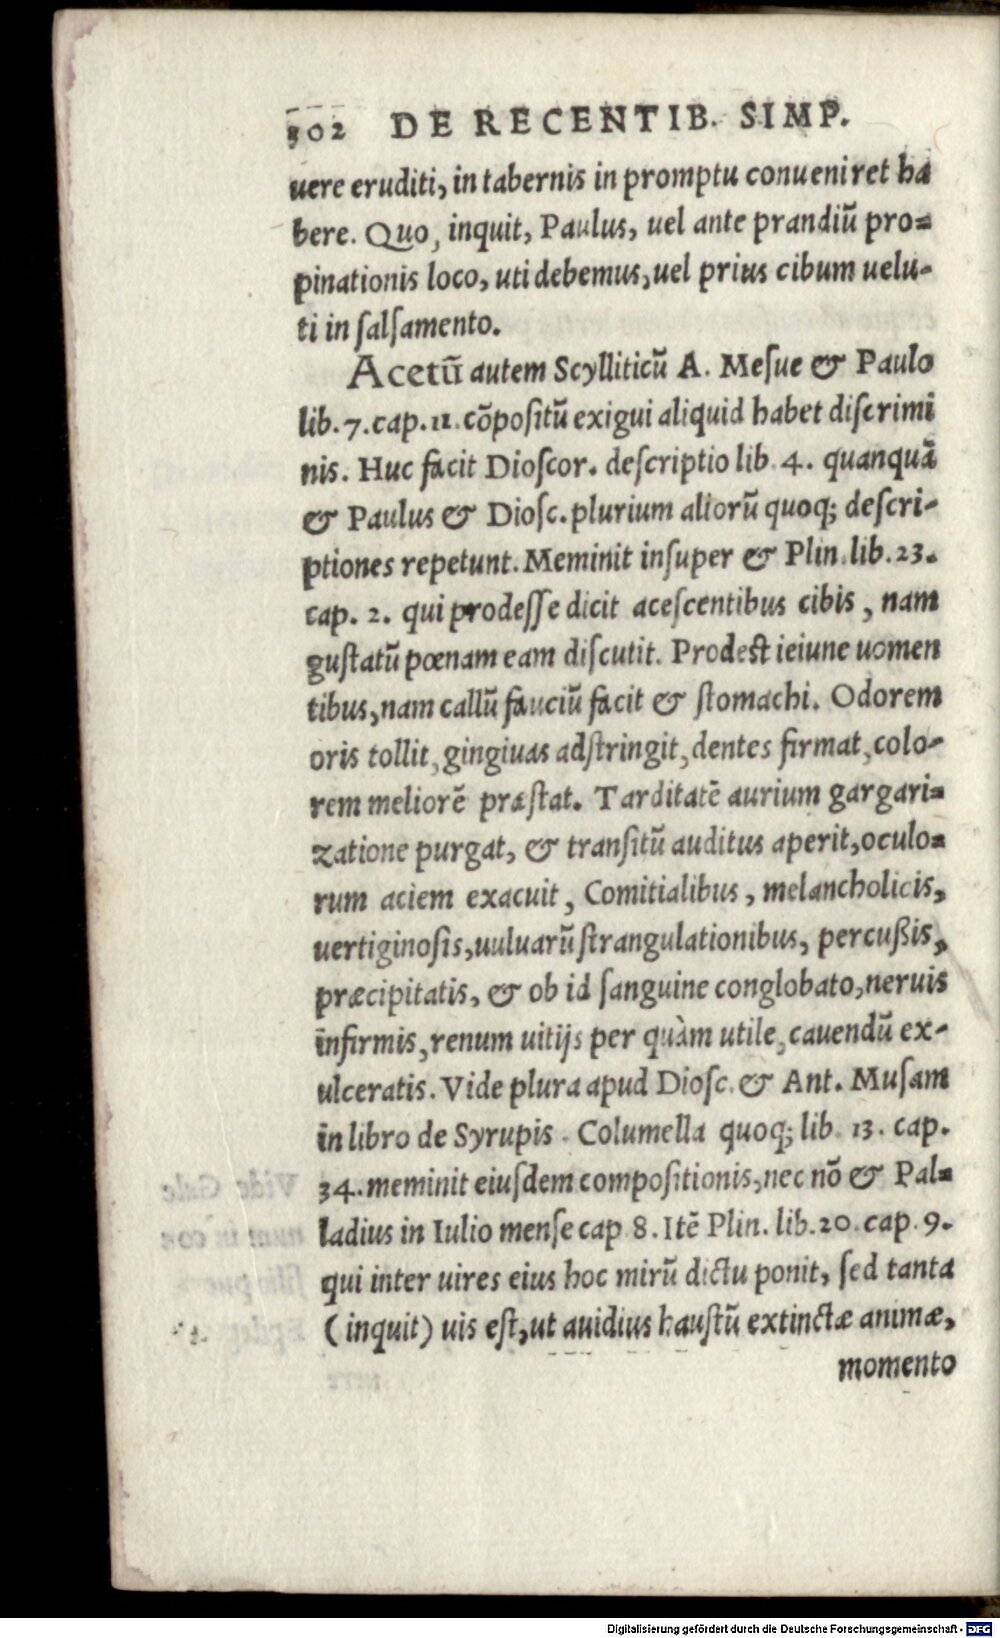 302 DE RECENTIB. SIMP.
uere eruditi, in tabernis in promptu conueniret ha
bere. Quo, inquit, Paulus, uel ante prandiũ pro=
pinationis loco, uti debemus, uel prius cibum uelu-
ti in ſalſamento.
Acetũ autem Scylliticũ A. Meſue & Paulo
lib. 7. cap. 11. cõpoſitũ exigui aliquid habet diſcrimi
nis. Huc facit Dioſcor. deſcriptio lib. 4. quanquã
& Paulus & Dioſc. plurium aliorũ quoq; deſcri-
ptiones repetunt. Meminit inſuper & Plin. lib. 23.
cap. 2. qui prodeſſe dicit aceſcentibus cibis, nam
guſtatũ pœnam eam diſcutit. Prodest ieiune uomen
tibus, nam callũ fauciũ facit & ſtomachi. Odorem
oris tollit, gingiuas adſtringit, dentes firmat, colo-
rem meliorẽ præſtat. Tarditatẽ aurium gargari=
zatione purgat, & tranſitũ auditus aperit, oculo=
rum aciem exacuit, Comitialibus, melancholicis,
uertiginoſis, uuluarũ ſtrangulationibus, percußis,
præcipitatis, & ob id ſanguine conglobato, neruis
infirmis, renum uitijs per quàm utile, cauendũ ex-
ulceratis. Vide plura apud Dioſc. & Ant. Muſam
in libro de Syrupis. Columella quoq; lib. 13. cap.
34. meminit eiuſdem compoſitionis, nec nõ & Pal=
ladius in Iulio menſe cap 8. Itẽ Plin. lib. 20. cap. 9.
qui inter uires eius hoc mirũ dictu ponit, ſed tanta
(inquit) uis eſt, ut auidius hauſtũ extinctæ animæ,
momento
Digitalisierung gefördert durch die Deutsche Forschungsgemeinschaft - DFG